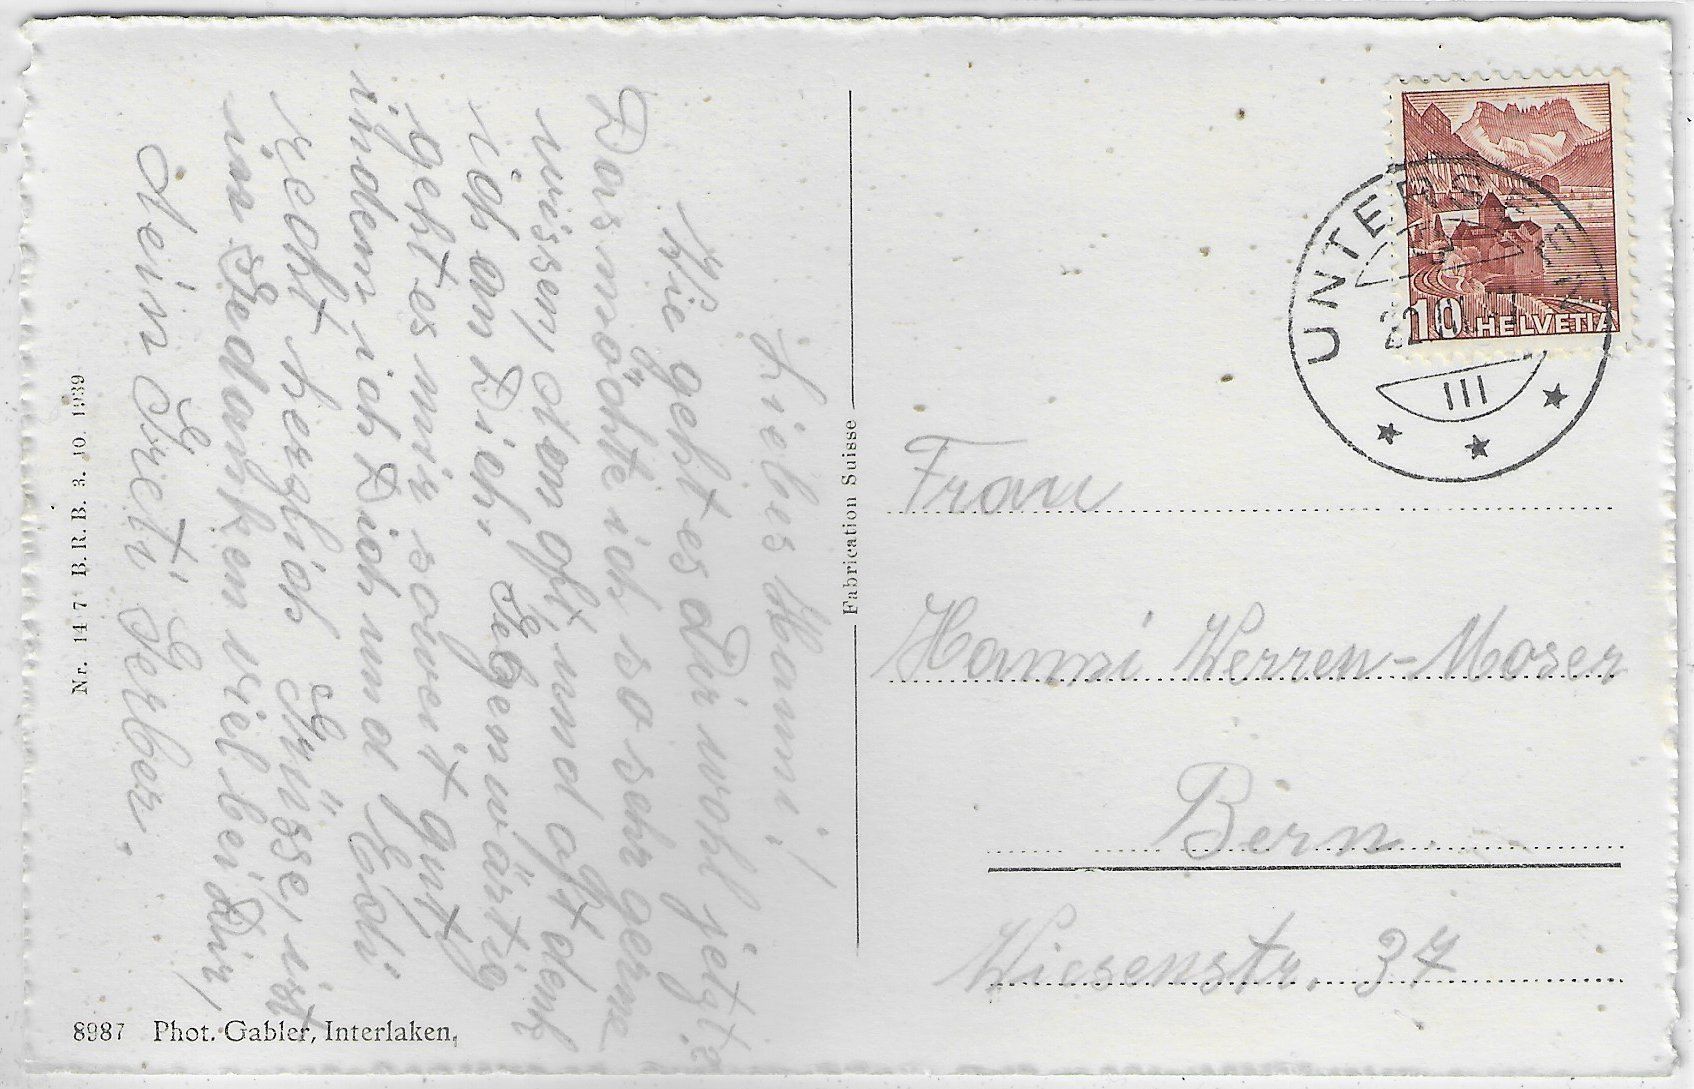 Liebes Hanni!
Wie geht es Dir wohl jetzt?
Das möchte ich so sehr gerne
wissen, Nun oft und oft denk
ich an Dich. Gegenwärtig
geht es mir soweit gut,
indem ich Dich und Edi
recht herzlich Grüsse, ist
in Gedanken viel bei Dir,
Dein Greti Gerber.
Nr. 14 7 B. R. B. 3. 10. 1939
8987 Phot. Gabler, Interlaken.
Fabrication Suisse
UNTERSEEN
22.
III
10 HELVETIA
Frau
Hanni Werren-Moser
Bern
Wiesenstr. 37